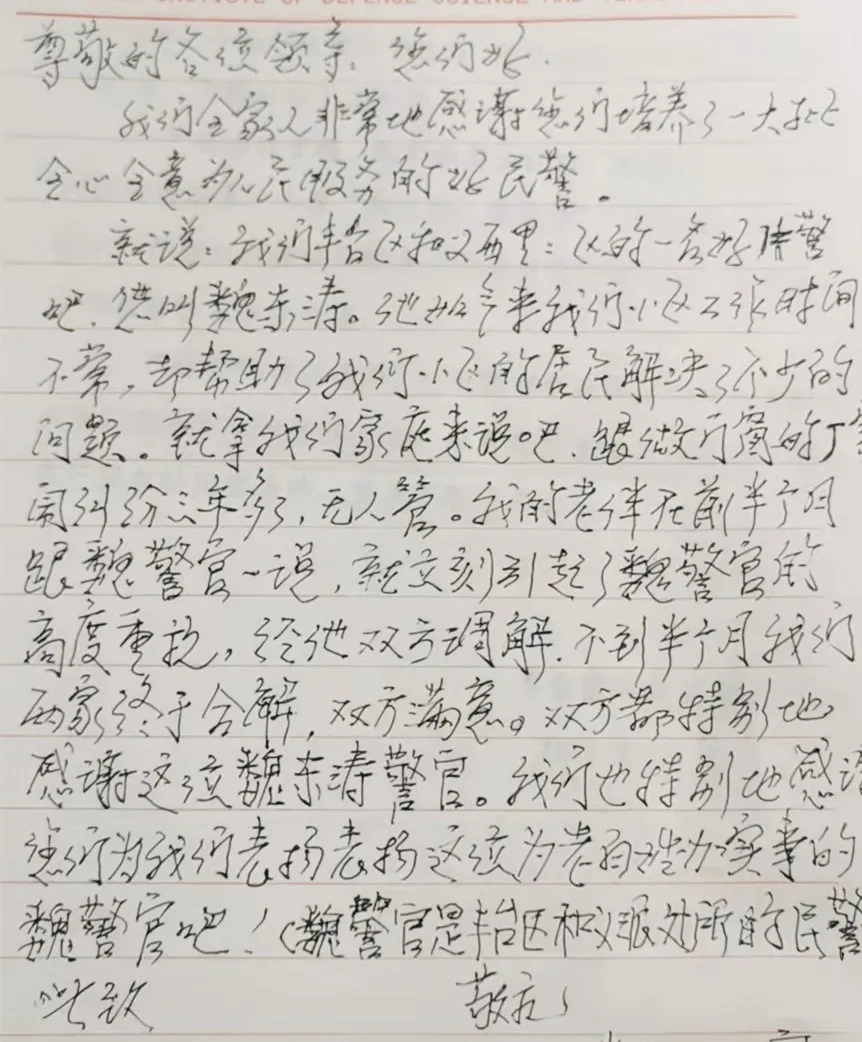 INSTITUTE OF DEFENCE SCIENCE AND
尊敬的各位领导：您们好.
我们全家人非常地感谢您们培养了一大批
全心全意为人民服务的好民警。
就说：我们丰台区和义西里=区的一名好片警
吧.他叫魏东涛。他如今来我们小区工张时间
不常，却帮助了我们小区的居民解决了不少的
问题。就拿我们家庭来说吧.跟做门窗的厂家
闹纠纷三年多了，无人管。我的老伴在前半个月
跟魏警官一说，就立刻引起了魏警官的
高度重视，经他双方调解.不到半个月我们
两家终于合解，双方满意。双方都特别地
感谢这位魏东涛警官。我们也特别地感谢
您们为我们表扬表扬这位为老百姓办实事的
魏警官吧！（魏警官是丰台区和义派处所的民警
此致 敬礼